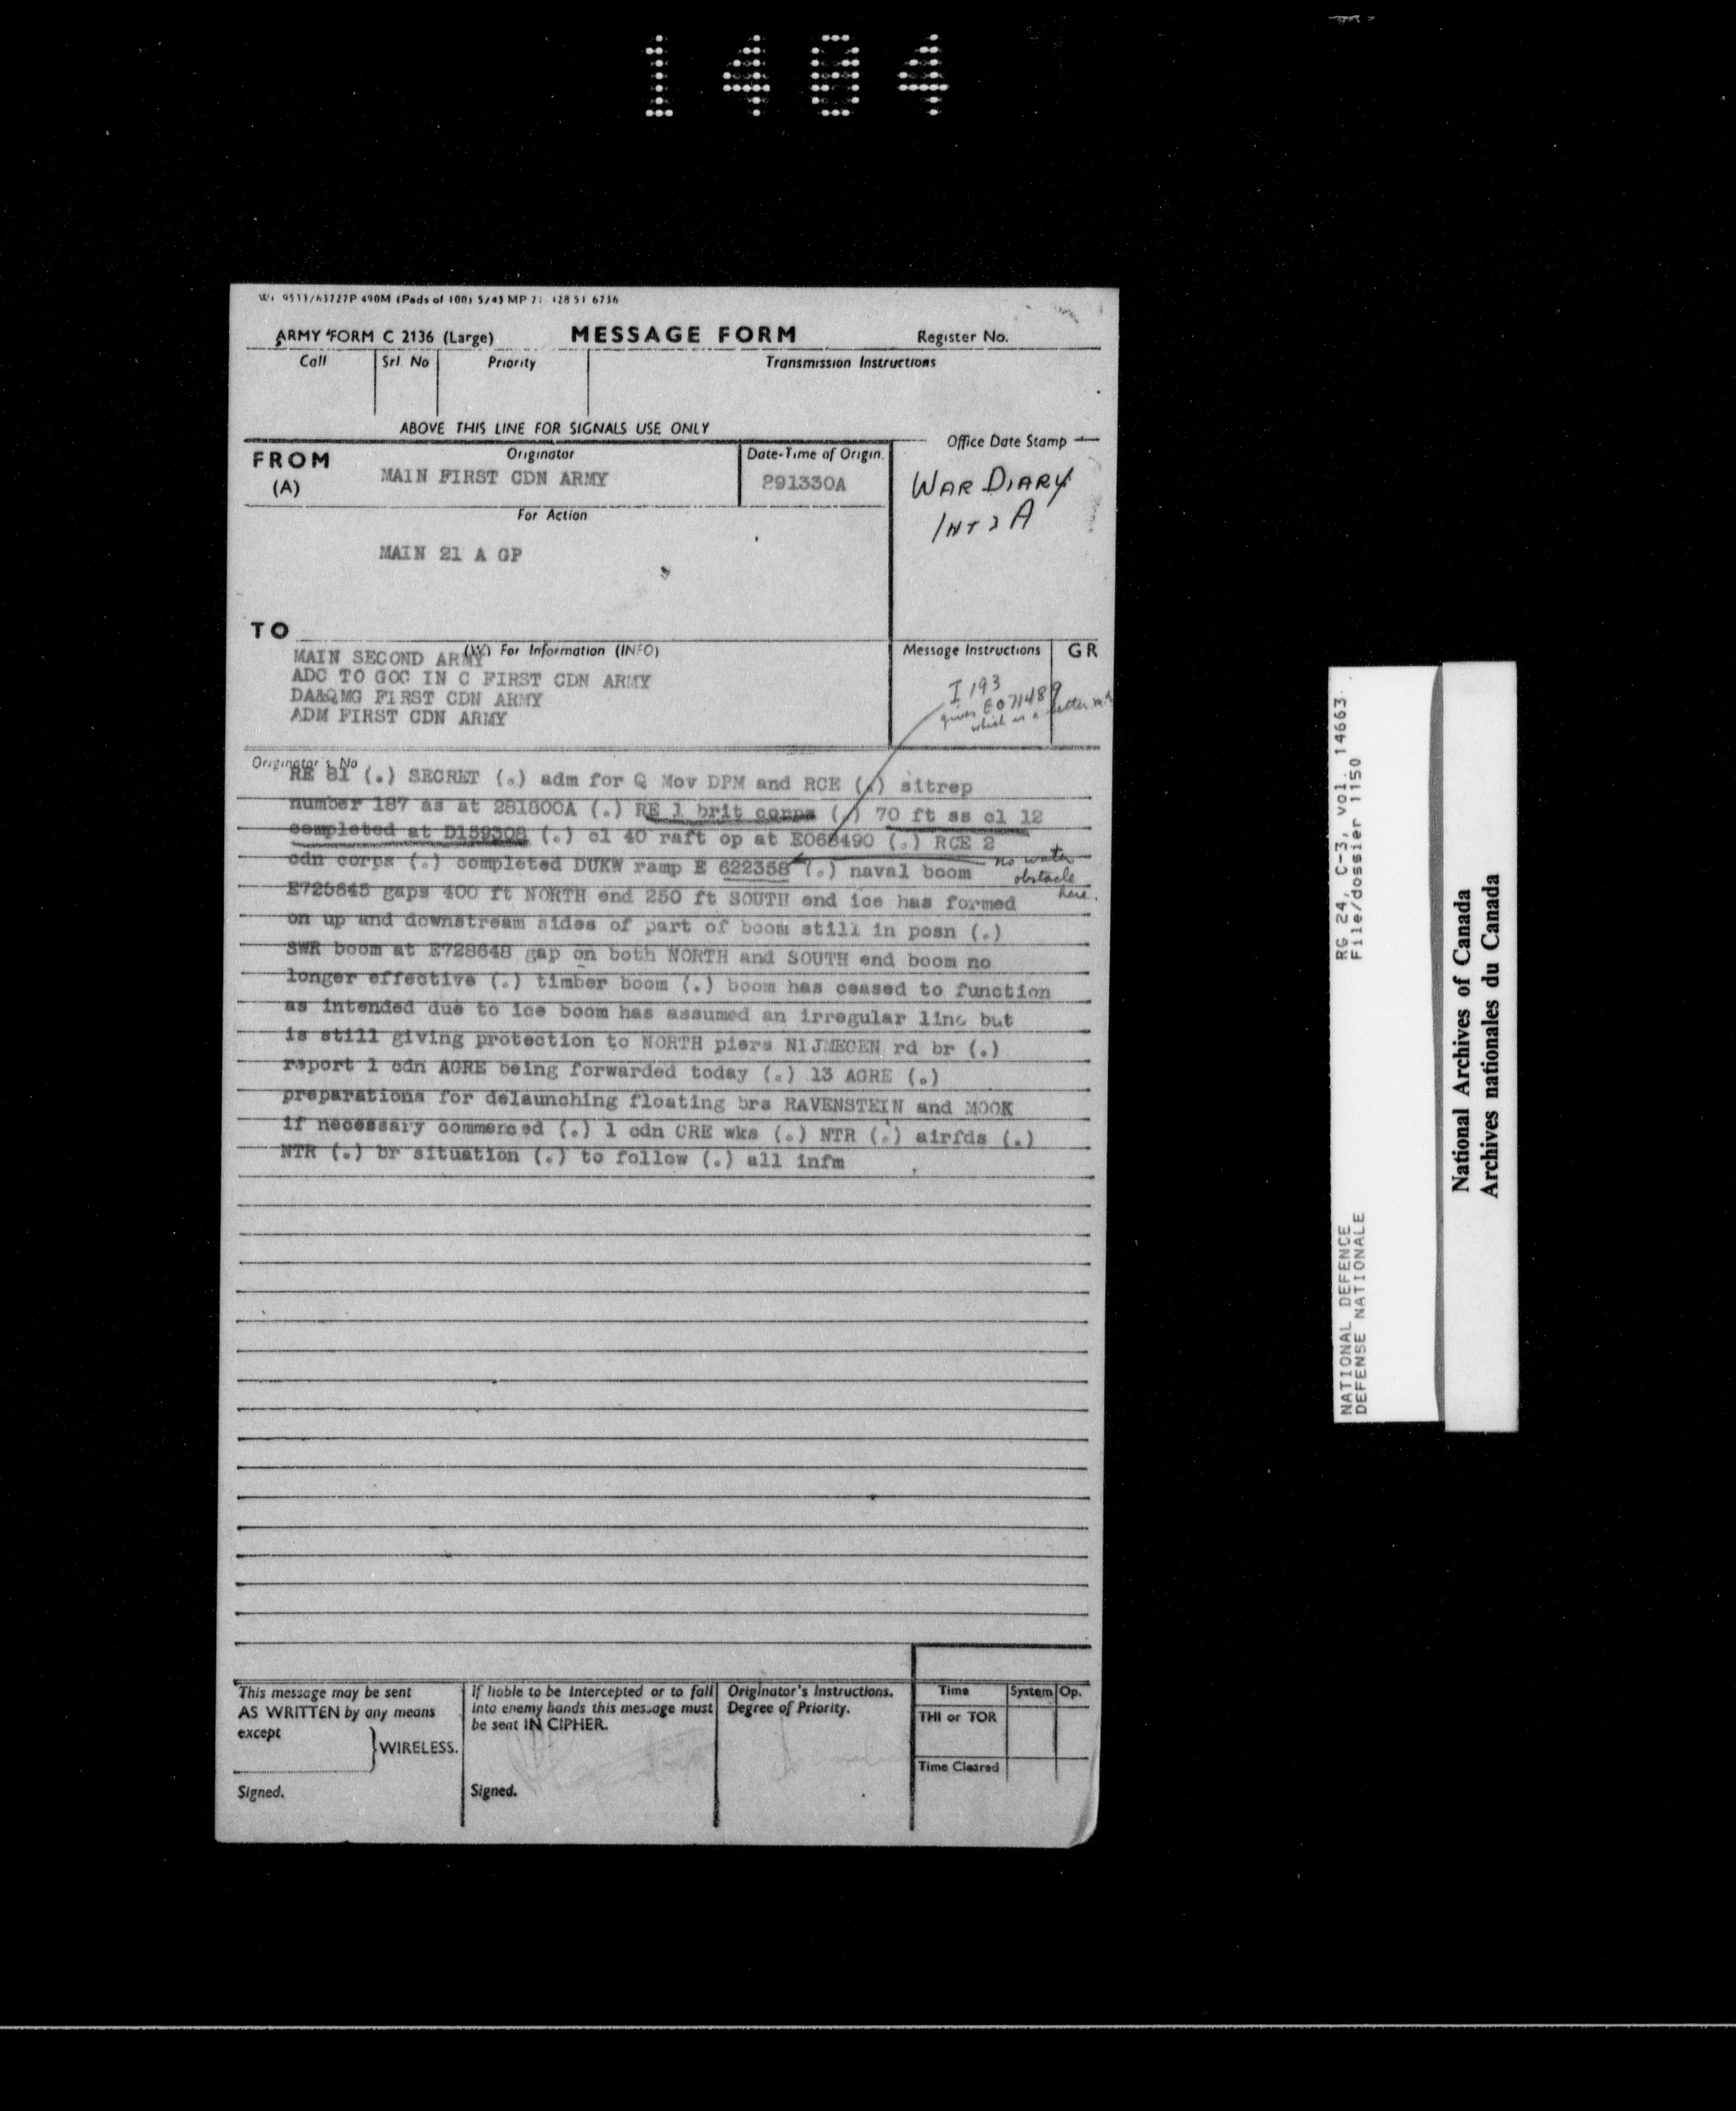 1404
ARMY FORM C 2136 (Large) MESSAGE FORM Register No.
Call Srl. No Priority Transmission Instructions
ABOVE THIS LINE FOR SIGNALS USE ONLY
Office Date Stamp
FROM (A) Originator Date-Time of Origin.
MAIN FIRST CDN ARMY 291330A
WAR DIARY
For Action
MAIN 21 A GP
TO
(W) For Information (INFO) Message Instructions GR
MAIN SECOND ARMY
ADC TO GOC IN C FIRST CDN ARMY
DA&QMG FIRST CDN ARMY
ADM FIRST CDN ARMY
I 193
gives E071489
which is a better
Originator's No
RE 81 (.) SECRET (.) adm for Q Mov DPM and RCE (.) sitrep
number 187 as at 281800A (.) RE 1 brit corps (.) 70 ft ss cl 12
completed at D159308 (.) cl 40 raft op at E068490 (.) RCE 2
cdn corps (.) completed DUKW ramp E 622358 (.) naval boom
no water
obstacle
here.
E725645 gaps 400 ft NORTH end 250 ft SOUTH end ice has formed
on up and downstream sides of part of boom still in posn (.)
SWR boom at E728648 gap on both NORTH and SOUTH end boom no
longer effective (.) timber boom (.) boom has ceased to function
as intended due to ice boom has assumed an irregular line but
is still giving protection to NORTH piers NIJMEGEN rd br (.)
report 1 cdn AGRE being forwarded today (.) 13 AGRE (.)
preparations for delaunching floating brs RAVENSTEIN and MOOK
if necessary commenced (.) 1 cdn CRE wks (.) NTR (.) airfds (.)
NTR (.) br situation (.) to follow (.) all infm
This message may be sent
AS WRITTEN by any means
except
WIRELESS.
Signed.
If liable to be intercepted or to fall
into enemy hands this message must
be sent IN CIPHER.
Signed.
Originator's Instructions.
Degree of Priority.
Time System Op.
THI or TOR
Time Cleared
RG 24, C-3, vol. 14663
File/dossier 1150
NATIONAL DEFENCE
DEFENSE NATIONALE
National Archives of Canada
Archives nationales du Canada